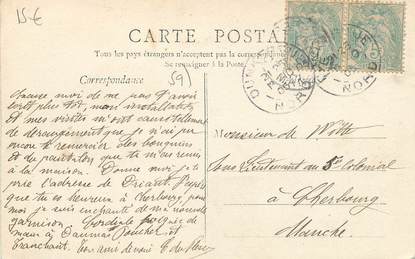 15€
CARTE POSTALE
Tous les pays étrangers n'acceptent pas la correspondance
Se renseigner à la Poste.
Correspondance
59)
Excuse moi de ne pas t'avoir
écrit plus tôt, mon installation
et mes visites m'ont
de dérangement que je n'ai pu
encore te remercier des bouquins
et du pantalon que tu m'as remis
à la maison. Donne moi je te
prie l'adresse de Driant.
que tu es heureux à Cherbourg, pour
moi je suis enchanté de ma nouvelle
garnison. Cordiale poignée de
main à Daumas, Pouchet et
Tranchant.
Monsieur de Wolte
Sous Lieutenant au 5e Colonial
à Cherbourg
Manche.
NORD
NORD